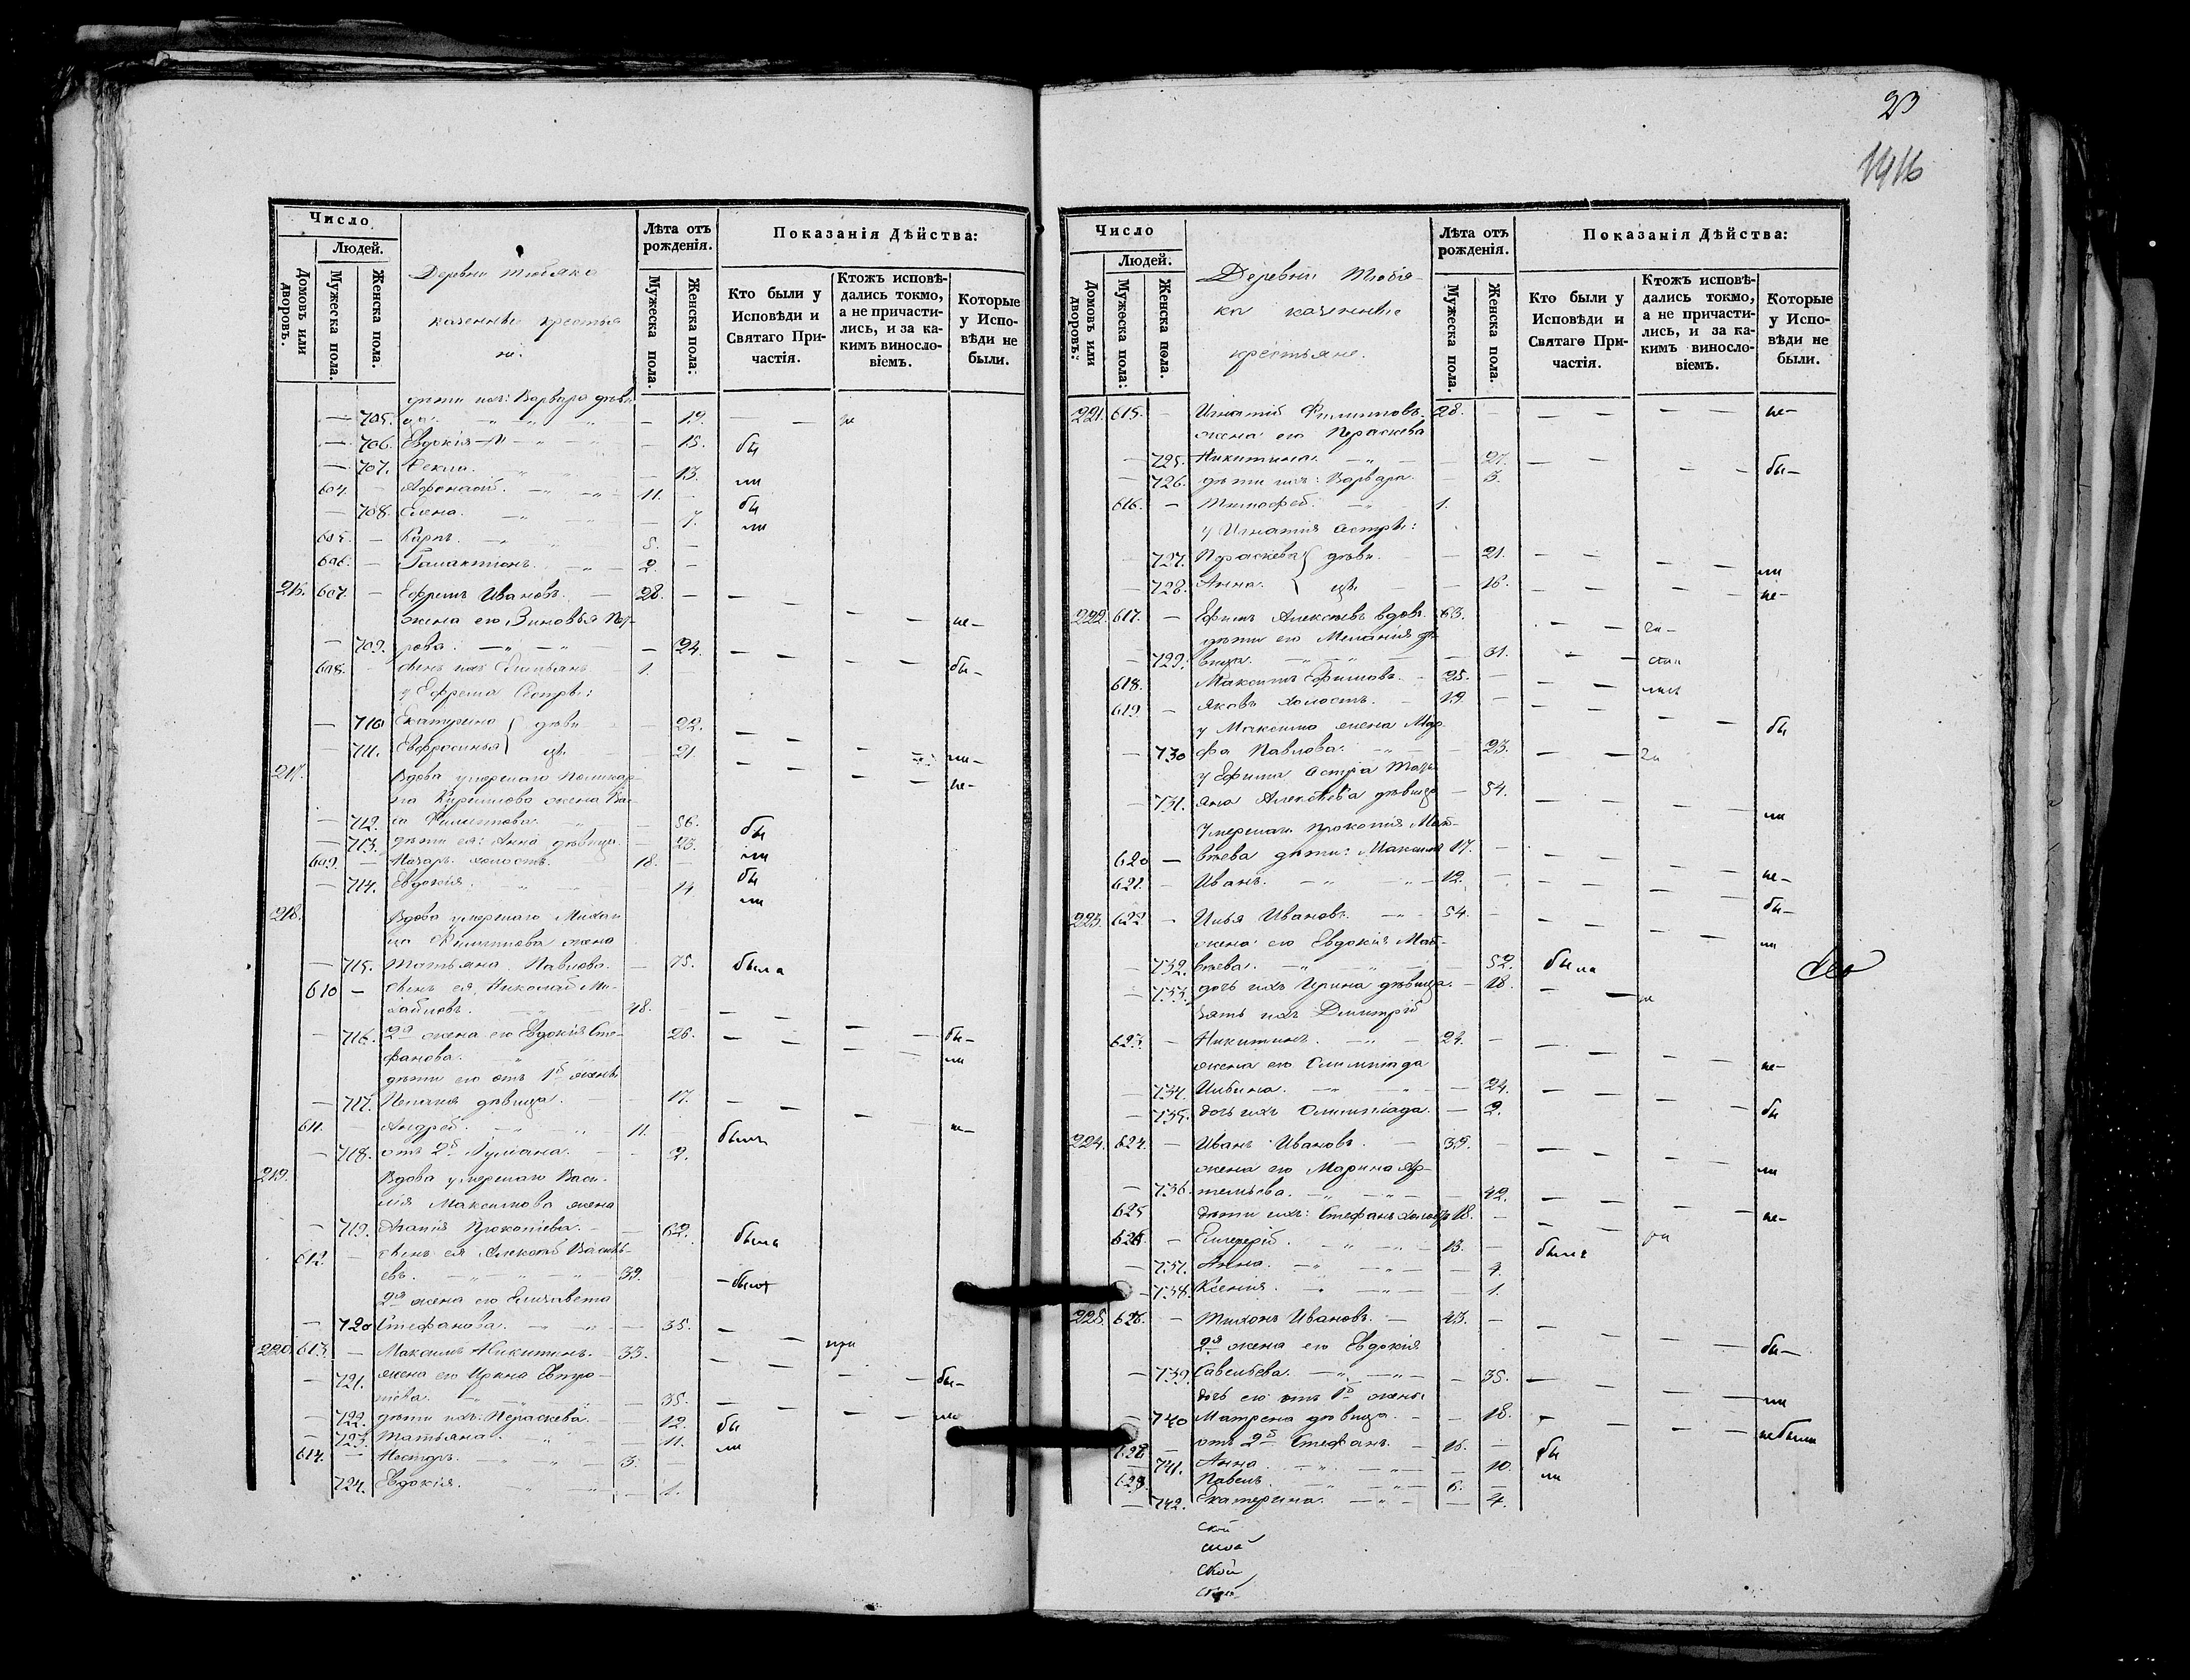 Число
Людей.
Домовъ или дворовъ.
Мужеска пола.
Женска пола.
Деревни Тюбяка
казенные крестья
не.
Лѣта отъ рожденія.
Мужеска пола.
Женска пола:
Показанія Дѣйства:
Кто были у Исповѣди и Святаго Причастія.
Ктожъ исповѣдались токмо, а не причастились, и за какимъ винословіемъ.
Которые у Исповѣди не были.
дѣти ихъ: Варвара дѣви
705. ца. 19.
706. Евдокія 15. бы
707. Фекла. 13. ли
604. Афонасій. 11. бы
708. Елена. 7. ли
605. Карпъ. 5.
606. Галактіонъ. 2.
216. 607. Ефремъ Ивановъ. 28.
жена его Зиновья Пет не
709. рова. 24.
608. сынъ ихъ Емельянъ 1. бы
у Ефрема Сестры:
710 Екатерина дѣви 22.
711. Евфросинья цы 21. ли
217. Вдова умершаго Поликар не
па Кирилова жена Ва
712. са Филиппова. 56. бы
713. дѣти ея: Анна дѣвица. 23. ли
609. Назаръ холостъ. 18. бы
714. Евдокія. 14 ли
218. Вдова умершаго Михаи
ла Филиппова жена
715. Татьяна Павлова. 75. была
610 сынъ ея Николай Ми-
хайловъ. 48.
716. 2я жена его Евдокія Сте- 26. бы
фанова. ли
дѣти его отъ 1й жены
717. Пелагея дѣвица. 17.
611. Андрей. 11. былъ не
718. отъ 2й Іуліана. 2.
219. Вдова умершаго Васи-
лія Максимова жена
719. Агапія Прокопіева. 62. была
612. сынъ ея Алексѣй Василь-
евъ. 39. были
2я жена его Елизавета
720 Стефанова. 35.
220. 613. Максимъ Никитинъ. 33.
721. жена его Ирина Евтро- бы
піева. 35.
722. дѣти ихъ: Параскева. 12. бы ли
723. Татьяна. 11. ли
614. Несторъ. 3.
724. Евдокія. 1.
23
1416
Число
Людей.
Домовъ или дворовъ:
Мужеска пола:
Женска пола.
Деревни Тюбя-
ка казенные
крестьяне.
Лѣта отъ рожденія.
Мужеска пола.
Женска пола.
Показанія Дѣйства:
Кто были у Исповѣди и Святаго Причастія.
Ктожъ исповѣдались токмо, а не причастились, и за какимъ винословіемъ.
Которые у Исповѣди не были.
221. 615. Игнатій Филипповъ. 28. не
жена его Параскева
725. Никитина. 27. бы
726. дѣти ихъ: Варвара. 3.
616. Тимофей. 1.
у Игнатія Сестры:
727. Параскева дѣви 21. ли
728. Анна. цы. 16. не
222. 617. Ефимъ Алексѣевъ вдовъ 63.
дѣти его Меланія дѣ
729. вица. 31.
618. Максимъ Ефимовъ. 25.
619 Яковъ холостъ. 19.
у Максима жена Мар- бы
730 фа Павлова. 23.
у Ефима Сестра Тать
731. яна Алексѣева дѣвица 54.
Умершаго Прокопія Мат- ли
620 вѣева дѣти: Максимъ 17.
621. Иванъ. 12. не
223. 622. Илья Ивановъ. 54. бы
жена его Евдокія Мат- ли
732. вѣева. 52. была
733. дочь ихъ Ирина дѣвица. 18.
зять ихъ Димитрій
623. Никитинъ. 24.
жена его Олимпіада не
734. Ильина. 24.
735. дочь ихъ Олимпіада. 2. бы
224. 624. Иванъ Ивановъ. 39.
жена его Марина Ар- ли
736. темьева. 42.
625 дѣти ихъ: Стефанъ холостъ 18. не
626 13. были
737. Анна. 4.
738. Ксенія. 1.
225. 626. Тихонъ Ивановъ. 43.
2я жена его Евдокія бы
739. Савельева. 35.
дочь его отъ 1й жены ли
740 Матрена дѣвица. 18.
628 отъ 2й Стефанъ. 16. бы не были
741. Анна. 10. ли
629 Павелъ. 6.
742. Екатерина. 4.